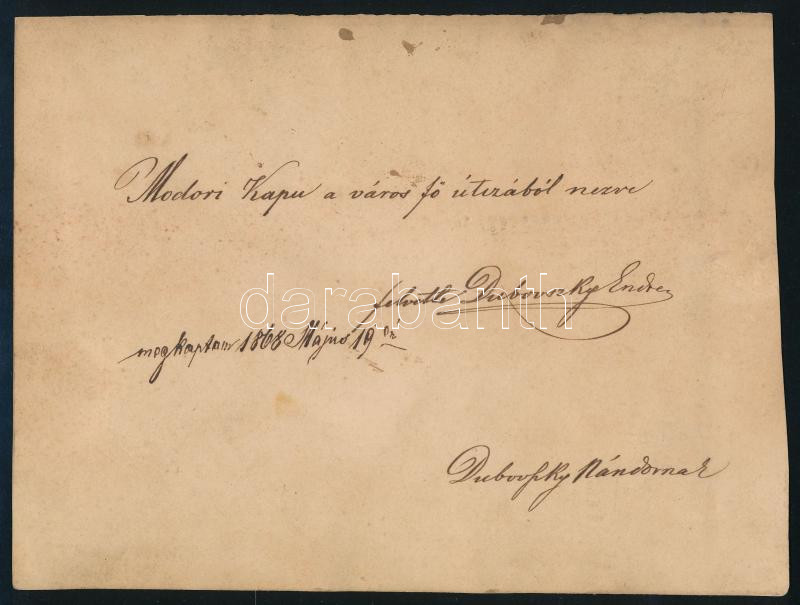 Modori Kapu a város fő útczából nezve
felvette Dubovszky Endre
megkaptam 1868 Május 19 én
Dubovszky Nándornak
darabanth